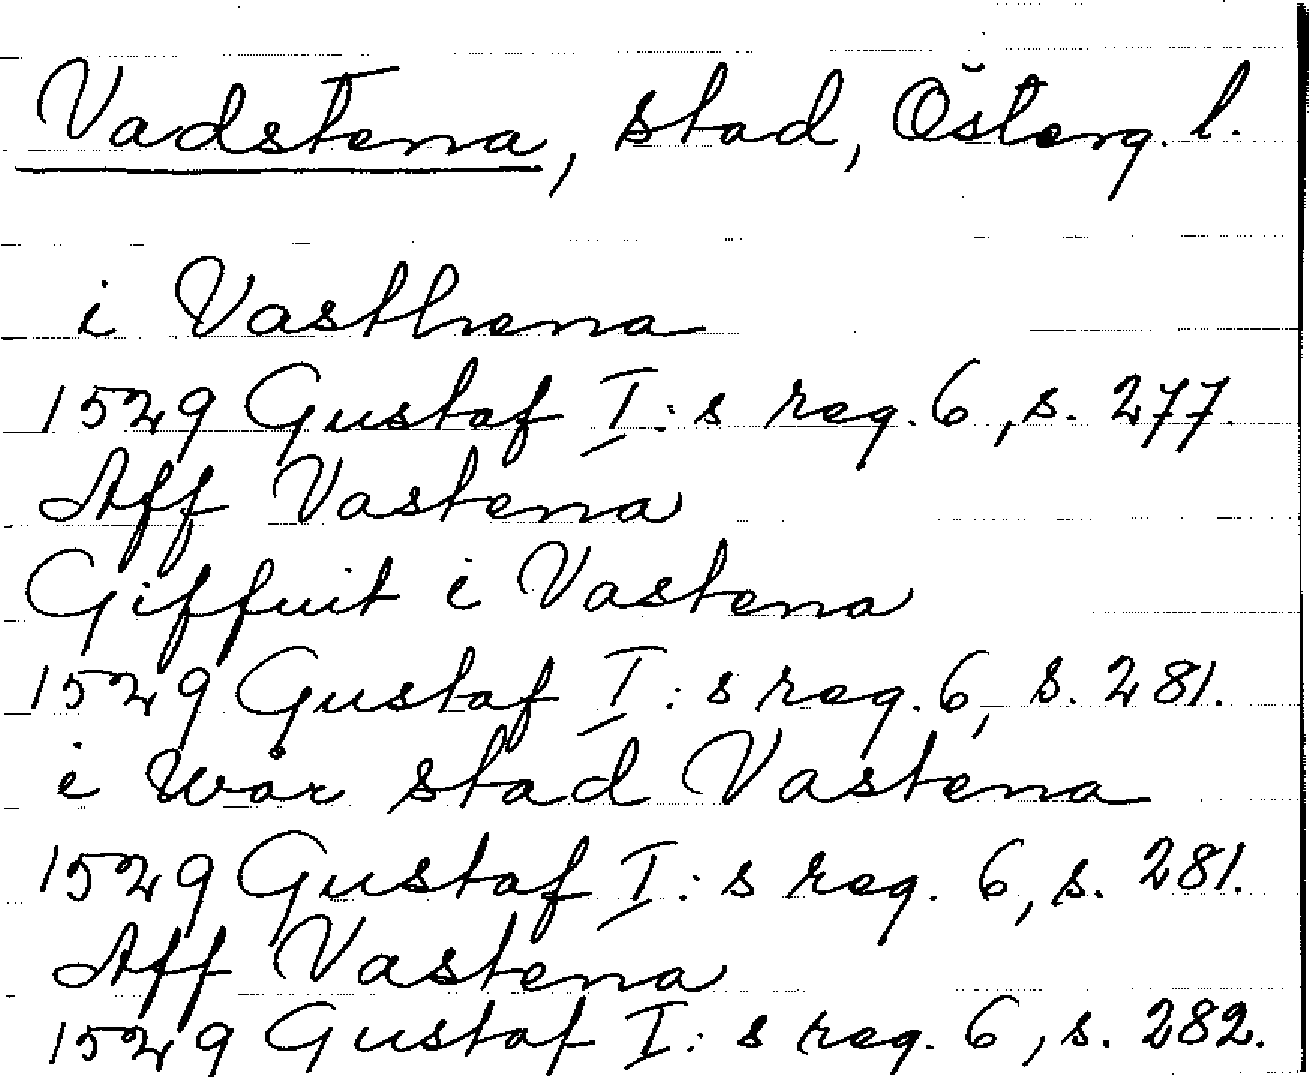 Vadstena, stad, Österg. l.
i Vasthena
1529 Gustaf I:s reg. 6, s. 277.
Aff Vastena
Giffuit i Vastena
1529 Gustaf I:s reg. 6, s. 281.
i wår stad Vastena
1529 Gustaf I:s reg. 6, s. 281.
Aff Vastena
1529 Gustaf I:s reg. 6, s. 282.